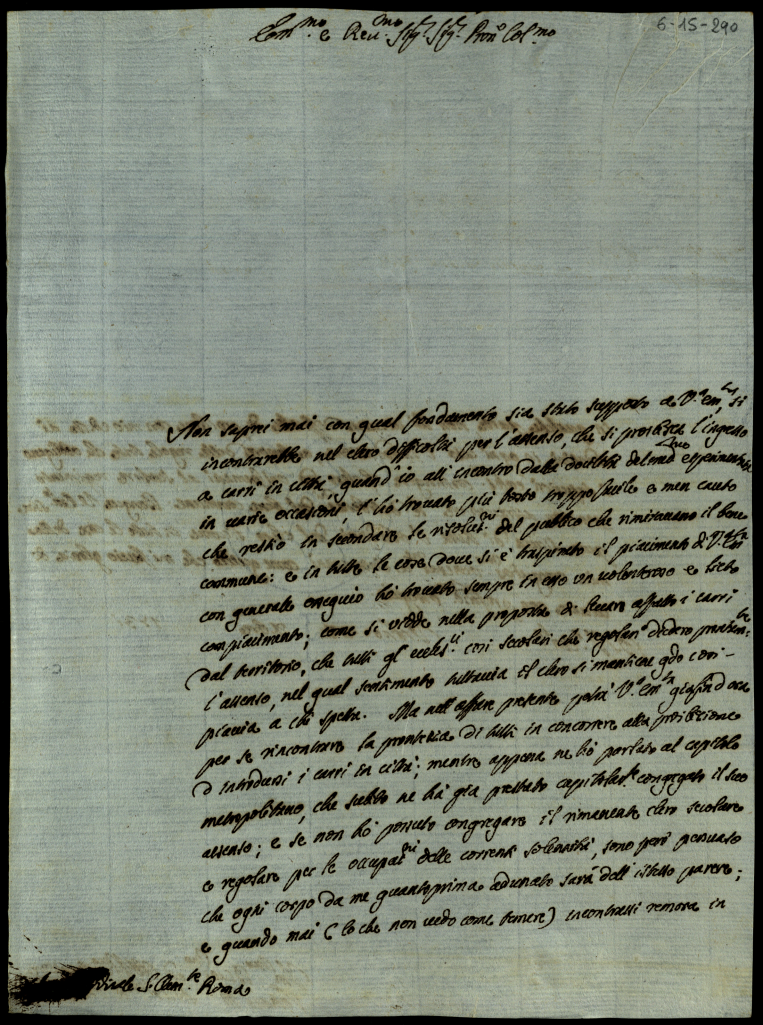 6-15-290
Em.mo e Rev.mo Sig.r Sig.r Pron Col.mo
Non saprei mai con qual fondamento sia stato supposto a V.a Em.za, si
incontrarebbe nel clero difficoltà per l'assenso, che si proibisca l'ingresso
a carri in città, quand'io all'incontro dalla docilità del med.mo esperimentata
in varie occasioni, l'hò trovato più tosto troppo facile e men cauto
che restio in secondare le risoluz.ni del publico che rimiravano il bene
commune: e in tutte le cose dove si è traspirato il piacimento di V.a Em.za
con generale ossequio hò trovato sempre in esso un volenteroso e lieto
compiacimento; come si vidde nella proposta di levare affatto i carri
dal territorio, che tutti gl'eccles.ci così secolari che regolari diedero
l'assenso, nel qual sentimento tuttavia il clero si mantiene qdo così
piaccia a chi spetta. Ma nell'affare presente potrà V.a Em.za
per se rincontrare la prontezza di tutti in concorrere alla proibizione
d'introdursi i carri in città; mentre appena ne hò parlato al capitolo
metropolitano, che subito ne hà già prestato capitolar.te congregato il suo
assenso; e se non hò possuto congregare il rimanente clero secolare
e regolare per le occupaz.ni delle correnti solennità, sono però persuaso
che ogni corpo da me quantoprima adunato sarà dell'istesso parere;
e quando mai (lo che non vedo come temere) incontrassi remora in
S. Clem.te Roma